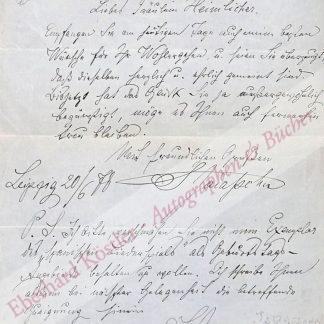 Liebes Fräulein Heimlicher.
Empfangen Sie am heutigen Tage auch meine besten
Wünsche für Ihr Wohlergehen u. seien Sie überzeugt,
daß dieselben herzlich u. ehrlich gemeint sind.
Bisher hat das Glück Sie ja außergewöhnlich
begünstigt, möge es Ihnen auch fernerhin
treu bleiben.
Mit freundlichen Grüßen
Leipzig 20/6
P.S. Ich bitte Sie mein Exemplar
des spanischen Liederspiels als Geburtstags-
behalten zu wollen. Ich schreibe Ihnen
bei nächster Gelegenheit die betreffende
Eberhard Köstler Autographen & Bücher